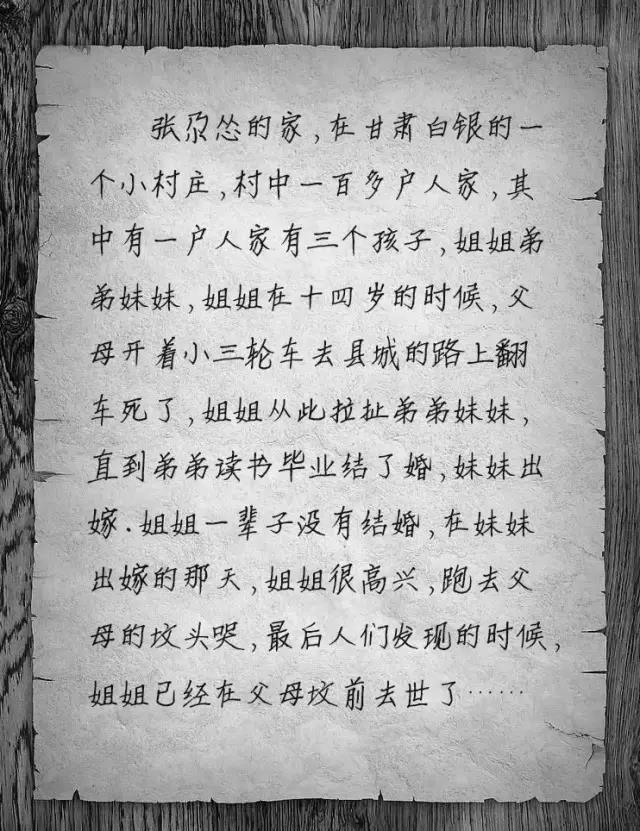 张尕怂的家,在甘肃白银的一
个小村庄,村中一百多户人家,其
中有一户人家有三个孩子,姐姐弟
弟妹妹,姐姐在十四岁的时候,父
母开着小三轮车去县城的路上翻
车死了,姐姐从此拉扯弟弟妹妹,
直到弟弟读书毕业结了婚,妹妹出
嫁.姐姐一辈子没有结婚,在妹妹
出嫁的那天,姐姐很高兴,跑去父
母的坟头哭,最后人们发现的时候,
姐姐已经在父母坟前去世了……